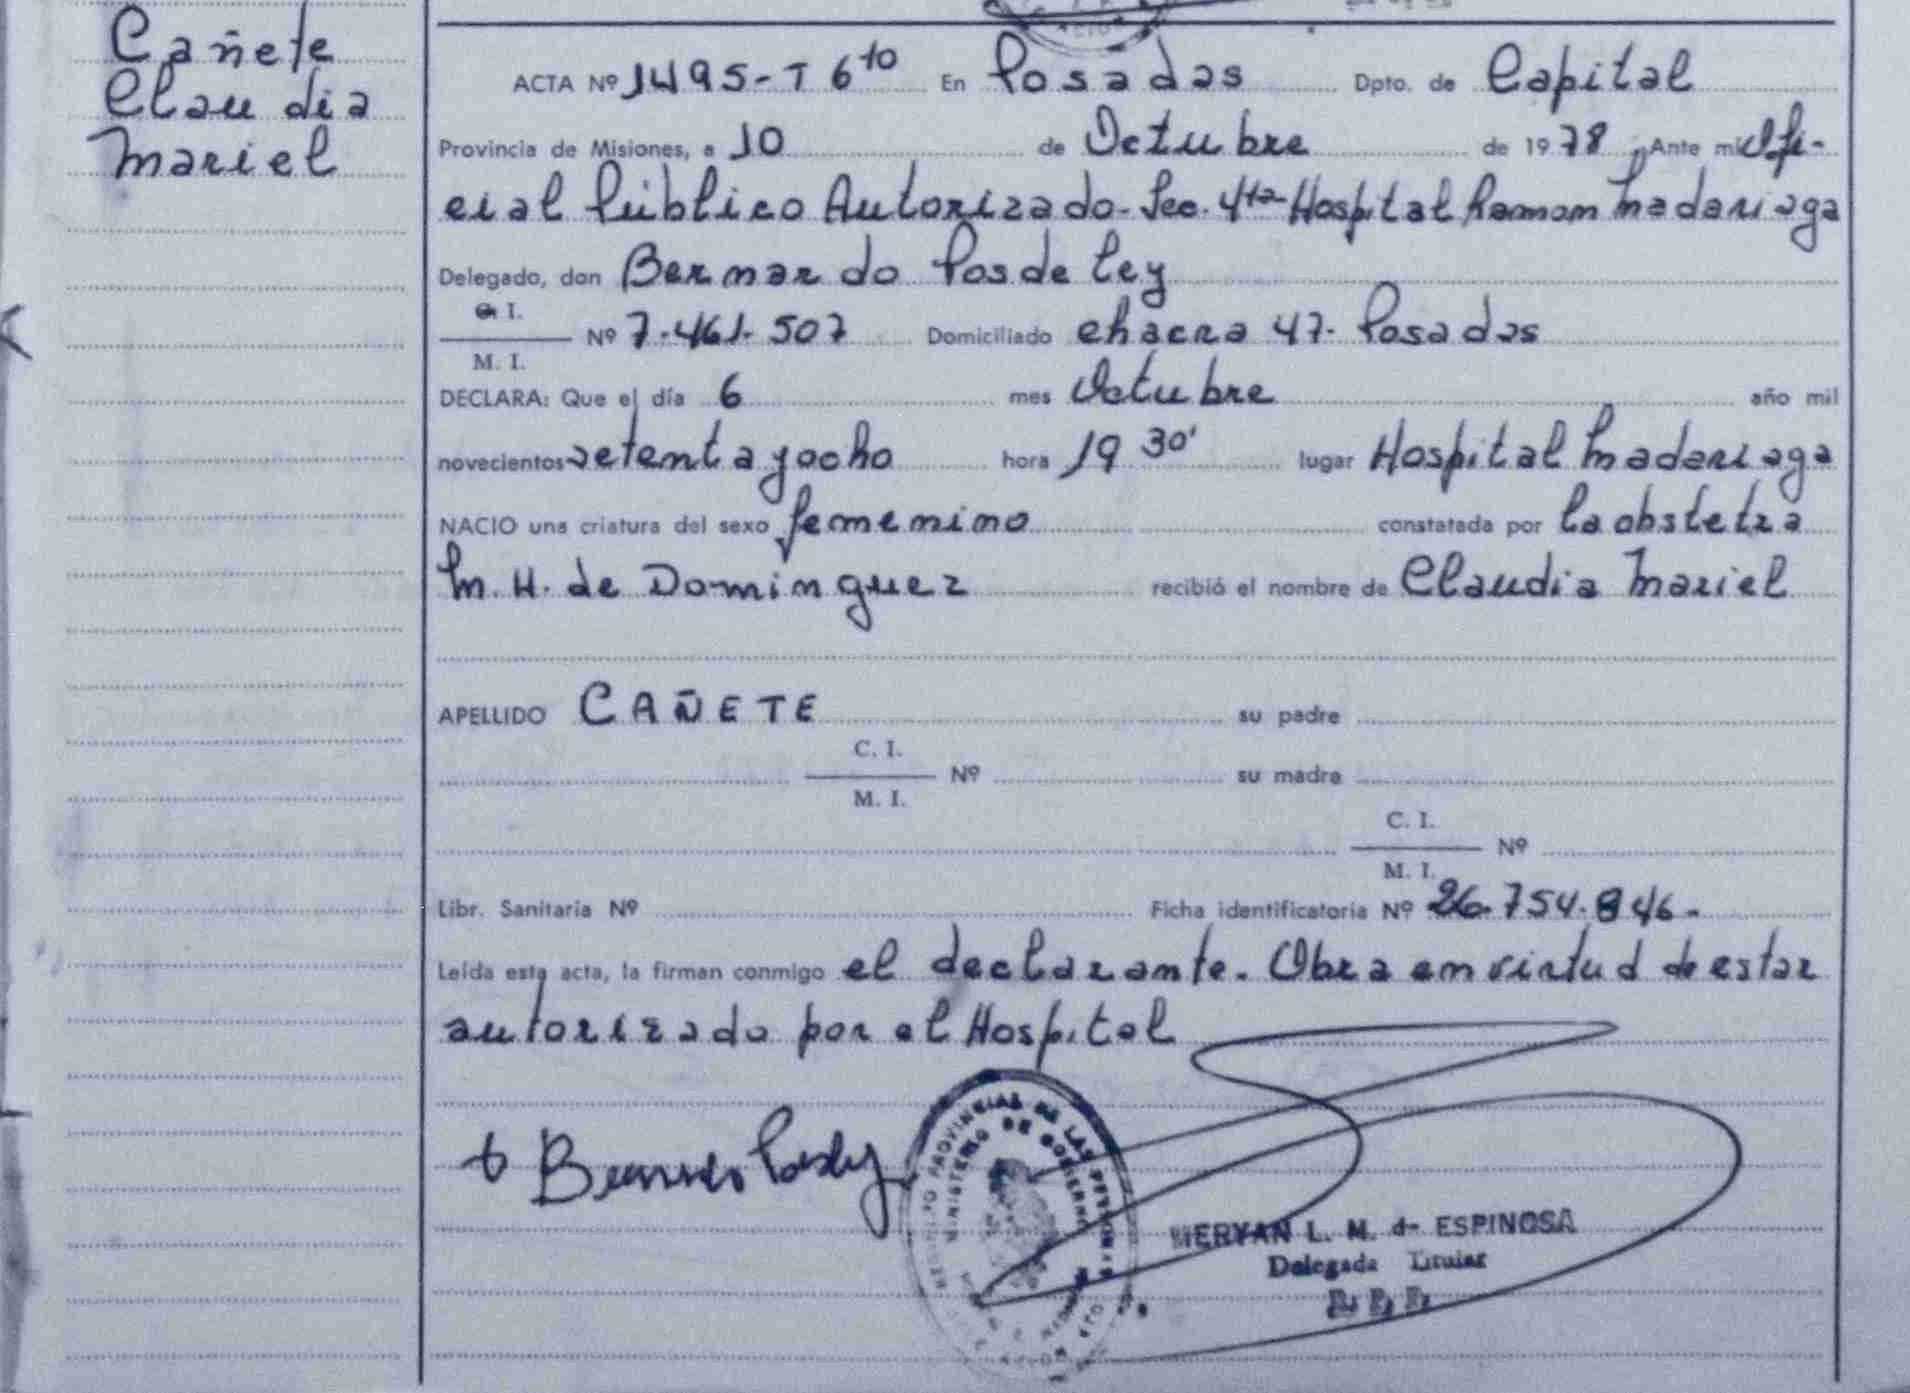 Cañete
Claudia
Mariel
ACTA Nº 1495-T 6to En Posadas Dpto. de Capital
Provincia de Misiones, a 10 de Octubre de 1978, Ante mi Ofi-
cial Público Autorizado-Sec. 4ta-Hospital Ramon Madariaga
Delegado, don Bernardo Posdeley
C. I.
Nº 7.461.507 Domiciliado chacra 47- Posadas
M. I.
DECLARA: Que el día 6 mes Octubre año mil
novecientos setenta y ocho hora 19 30' lugar Hospital Madariaga
NACIO una criatura del sexo femenino constatada por la obstetra
M. H. de Dominguez recibió el nombre de Claudia Mariel
APELLIDO CAÑETE su padre
C. I.
Nº su madre
M. I.
C. I.
Nº
M. I.
Libr. Sanitaria Nº Ficha identificatoria Nº 26.754.846-
Leída esta acta, la firman conmigo el declarante. Obra en virtud de estar
autorizado por el Hospital
REGISTRO PROVINCIAL DE LAS PERSONAS
MINISTERIO DE GOBIERNO
MERYAN L. M. de ESPINOSA
Delegada Titular
R. P. P.